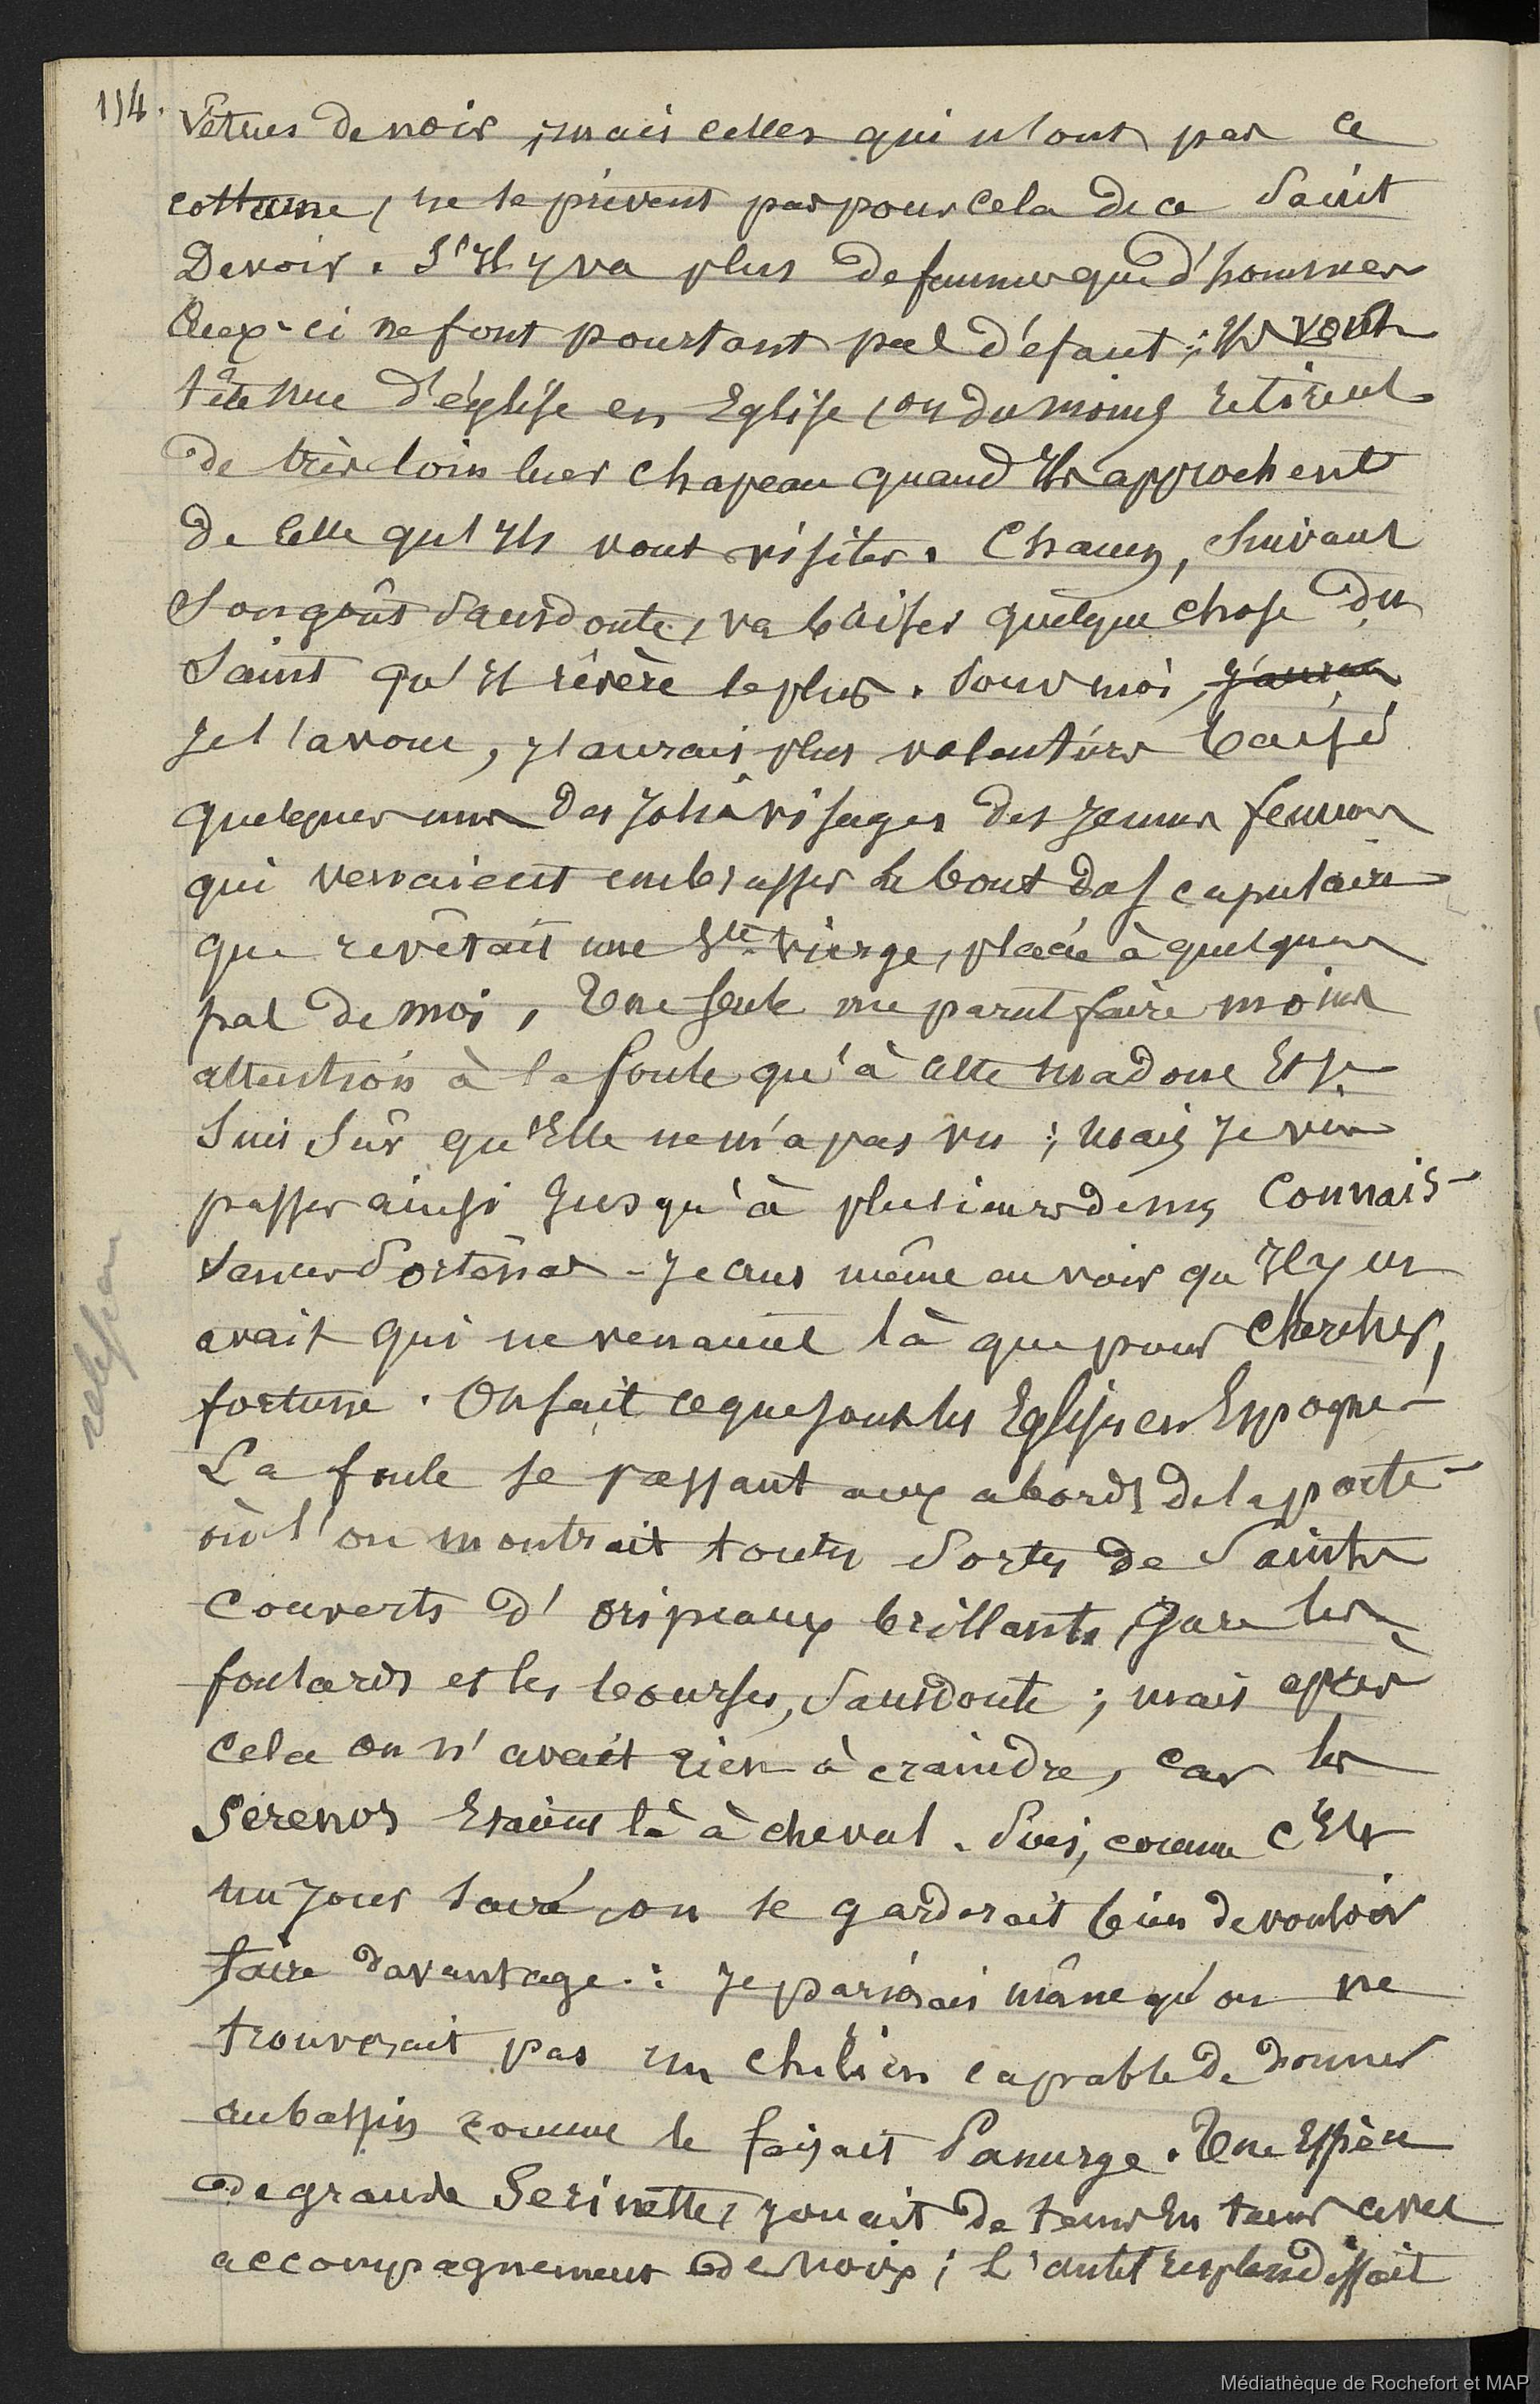 114.
Vêtues de noir ; mais celles qui n'ont pas ce
costume, ne se privent pas pour cela de ce Saint
Devoir. S'Il y va plus de femmes que d'hommes
Ceux-ci ne font pourtant pas défaut ; Ils vont
tête nue d'église en Eglise, ou du moins retirent
de très loin leur chapeau quand Ils approchent
de Celle qu'Ils vont visiter. Chacun, Suivant
Son goût Sans doute, va baiser quelque chose Du
Saint qu'Il révère le plus. Pour moi, j'aurai
Je l'avoue, j'aurais plus volontiers baisé
quelques uns des jolis visages des jeunes femmes
qui venaient embrasser le bout du scapulaire
que revêtait une Ste Vierge, placée à quelques
pas de moi, Une seule me parut faire moins
attention à la foule qu'à cette Madone Et je
Suis Sûr qu'Elle ne m'a pas vu ; Mais Je vis
passer ainsi Jusqu'à plusieurs de mes Connais-
sances Portenas - Je crus même en voir qu'Il y en
avait qui ne venaient là que pour chercher,
fortune. On sait ce que sont les Eglises en Espagne -
La foule se pressant aux abords de la porte -
où l'on montrait toutes Sortes de Saints
Couverts d'oripeaux brillants, Gare les
foulards et les bourses, Sans doute ; mais après
Cela on n'avait rien à craindre, car les
Serenos Etaient là à cheval. Puis, comme c'Est
un Jour Sacré, on se garderait bien de vouloir
faire davantage : Je parierais même qu'on ne
trouverait pas un chilien capable de donner
au bassin comme le faisait Panurge. Une Espèce
de grande Serinette, jouait de tems En tems avec
accompagnement de Noix ; L'autel resplendissait
religion
Médiathèque de Rochefort et MAP